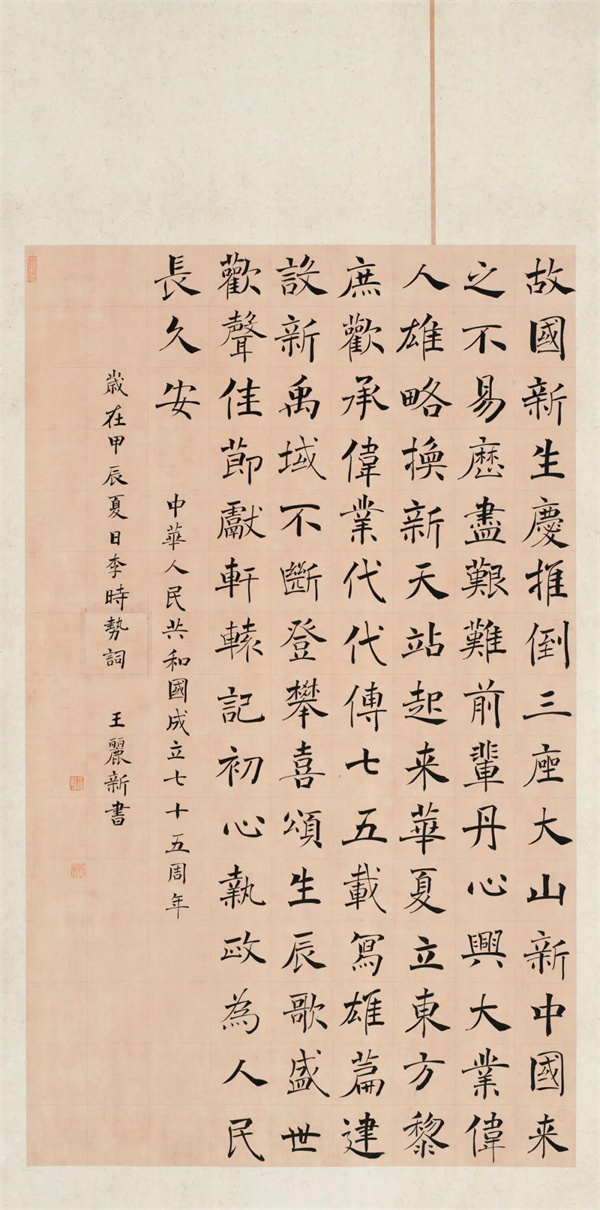 故國新生慶推倒三座大山新中國来
之不易歷盡艱難前輩丹心興大業偉
人雄略換新天站起来華夏立東方黎
庶歡承偉業代代傳七五載寫雄篇建
設新禹域不斷登攀喜頌生辰歌盛世
歡聲佳節獻軒轅記初心執政為人民
長久安
中華人民共和國成立七十五周年
歲在甲辰夏日李時勢詞 王麗新書